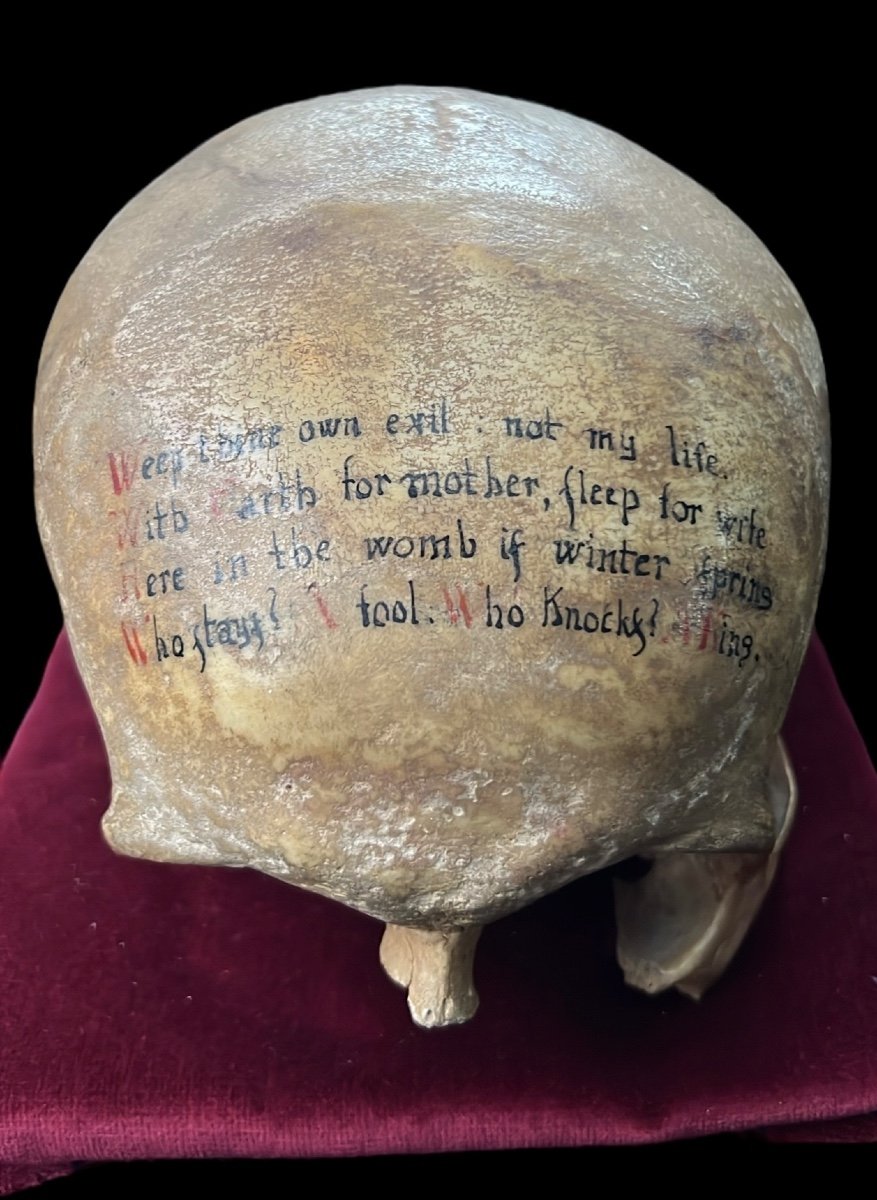 Weep thine own exil : not my life.
With Earth for mother, ſleep for wife
Here in the womb if winter ſpring
Who ſtayſ? A fool. Who Knockſ? A King.